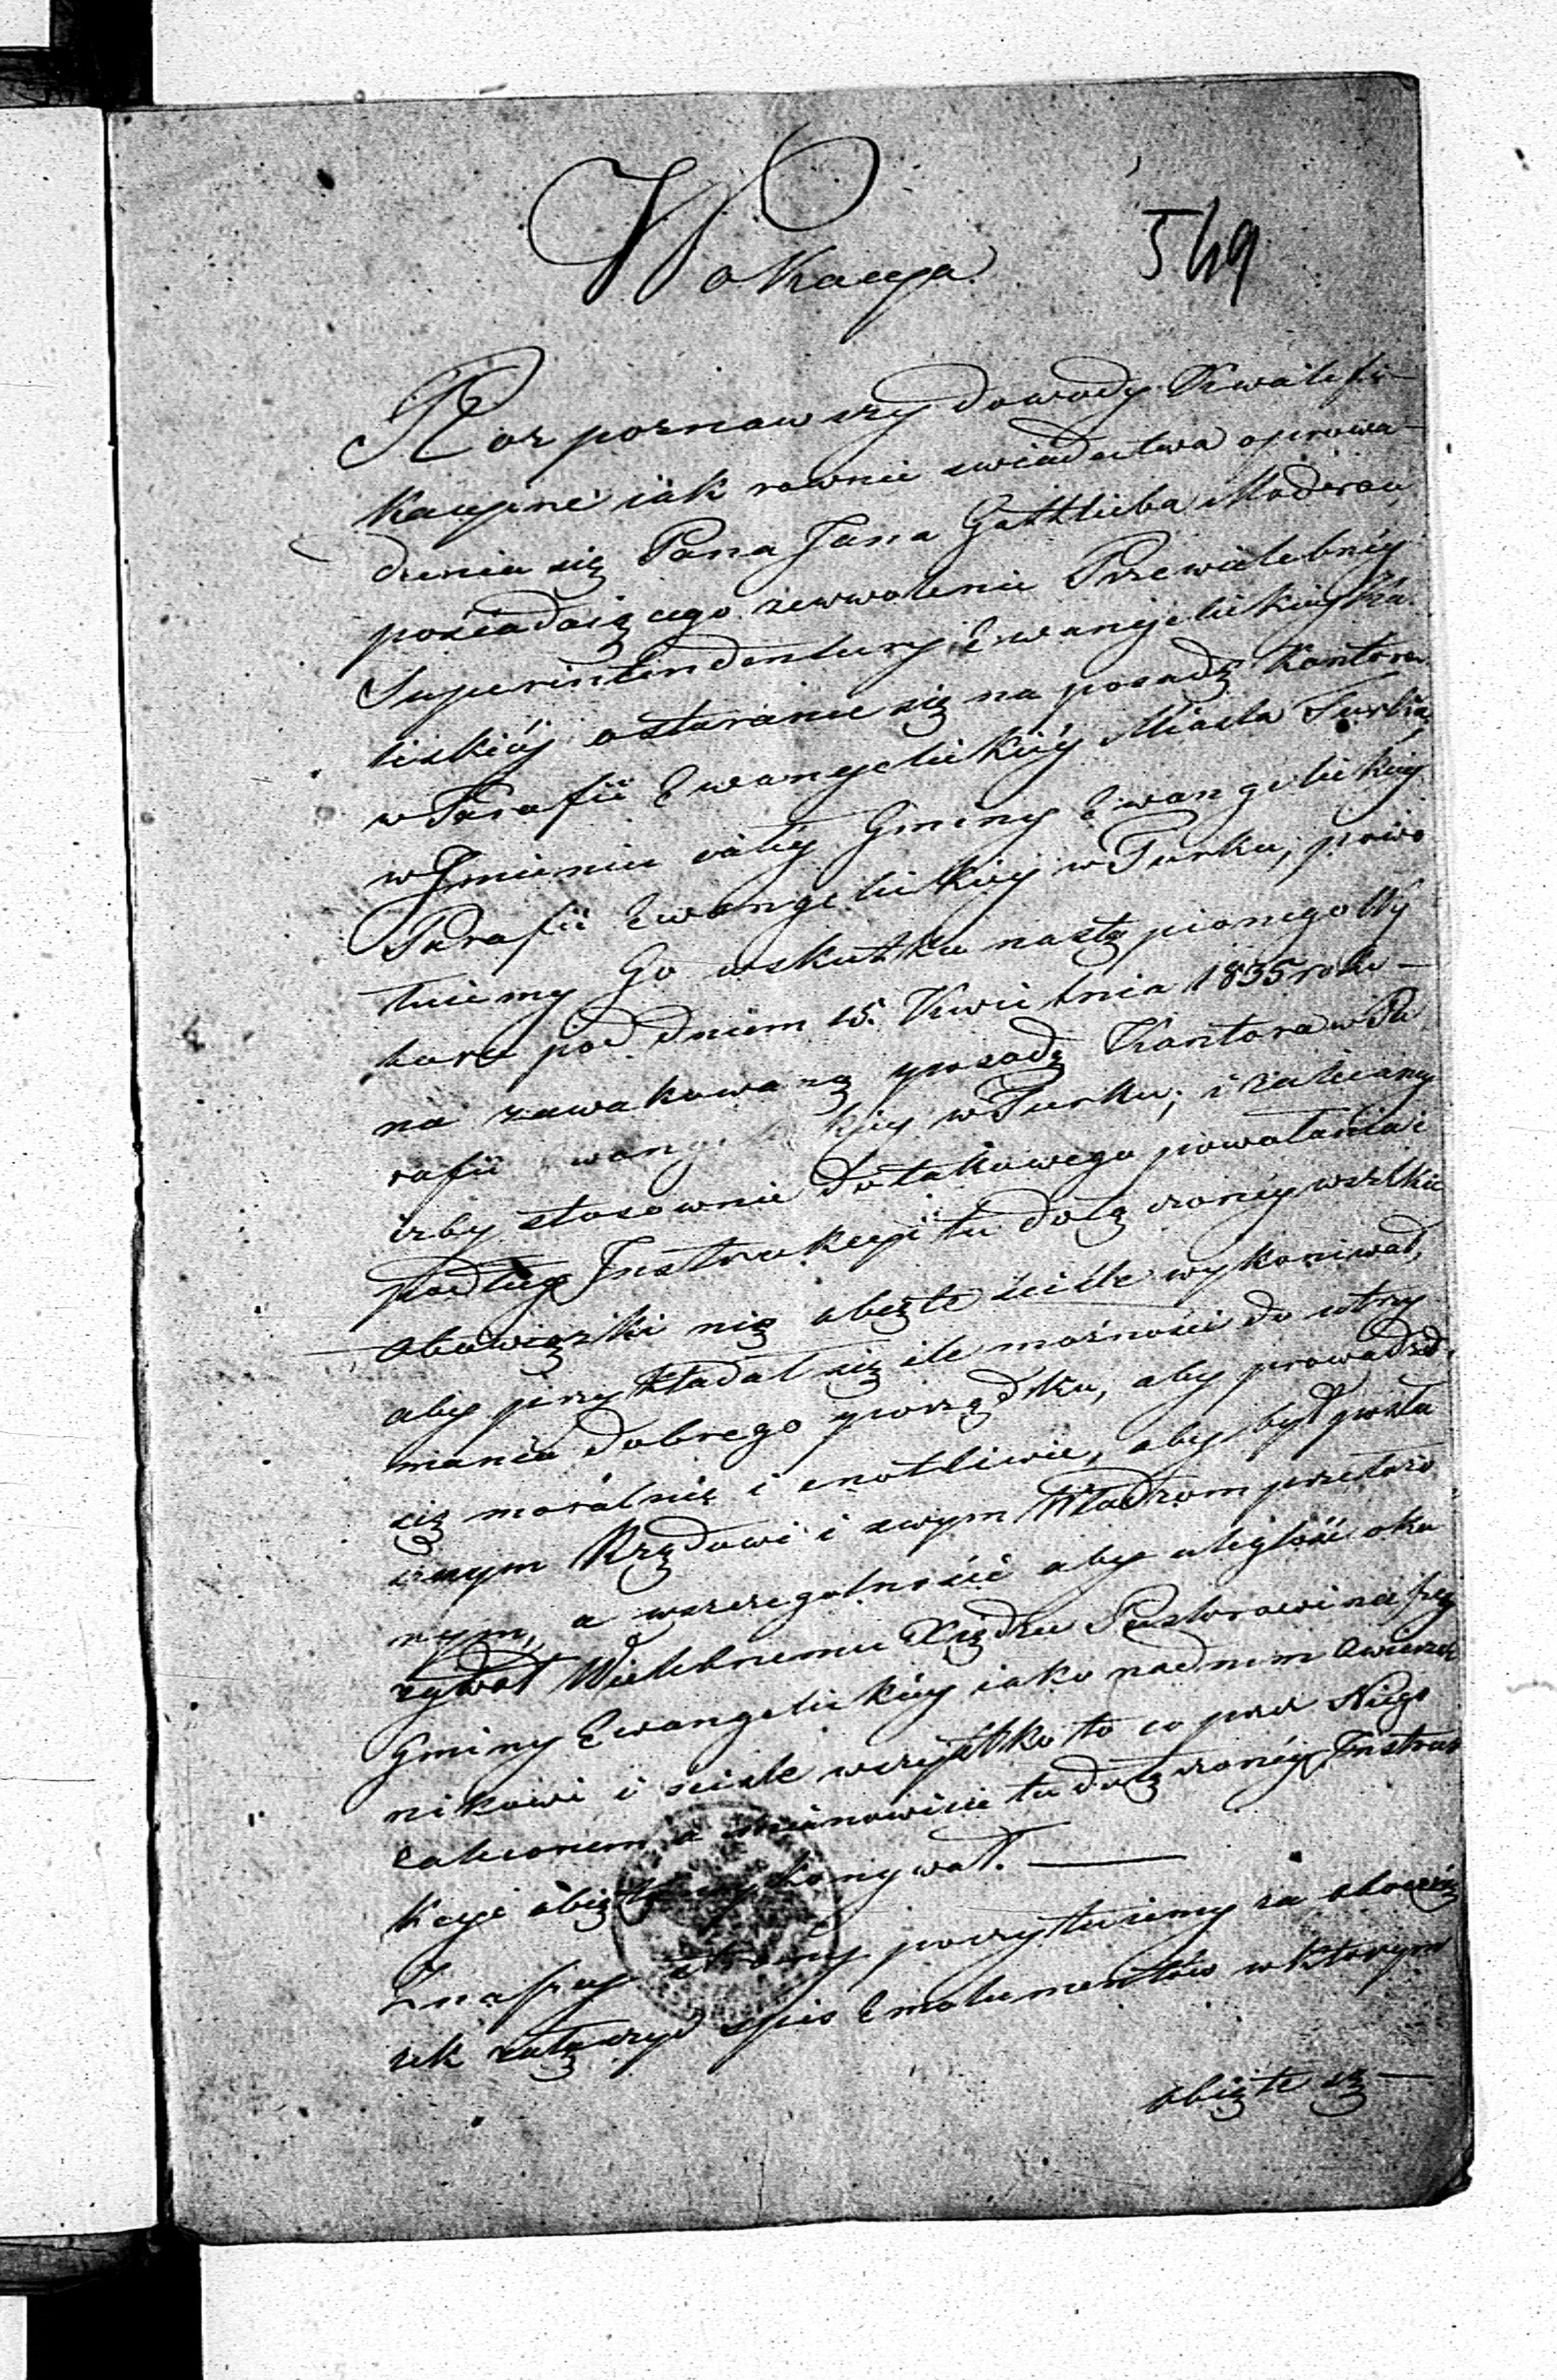 Wokacya
549
Rozpoznawszy dowody Kwalifi-
kacyine iak rownie swiadectwa oprowa-
dzenia się Pana Jana Gottlieba
posiadaiącego zezwolenie Przewielebnéy
Superintendentury Ewangelickiey Ka-
liskiéy ostaranie się na posadę Kantora
w Parafii Ewangelickiéy Miasta Turku,
w Imieniu całéy Gminy Ewangelickiey
Parafii Ewangelickiéy w Turku, powo-
łuiemy Go wskutku nastąpionego Wy
boru pod dniem 15. Kwietnia 1835 roku —
na zawakowaną posadę Kantora w Pa
rafii kiey w Turku; i zalecamy
iżby stosownie do takowego powołania i
podług Instrukcyi tu dołączonéy wszelkie
obowiązki nią obięte ściśle wykoniwał,
aby przykładał się ile możności do utrzy
mania dobrego porządku, aby prowadził
się moralnie i cnotliwie, aby był posłu
sznym Rządowi i swym Władzom przełożo
nym, a wszczegolności aby uległość oka
zywał Wielebnemu Xiędzu Pastorowi naszey
Gminy Ewangelickiéy iako nadnim zwierzch
nikowi i ściśle wszystko to co prze Niego
zaleconem a mianowicie tu dołączonéy Instruk
kcyi obięte wykonywał. —
Znaszey strony poczytuiemy za obowią
zek załączyć spis Emolumentów w ktorym
obięte są —